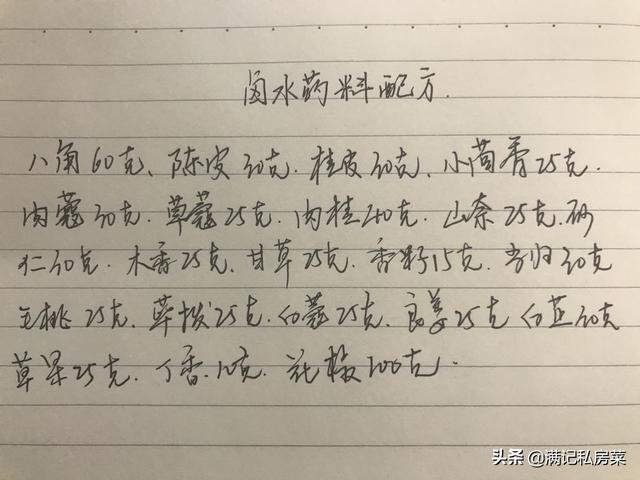 卤水药料配方.
八角60克、陈皮30克.桂皮30克、小茴香25克.
肉蔻30克.草蔻25克.肉桂40克.山奈25克.砂
仁30克.木香25克.甘草25克.香籽15克.当归30克
毛桃25克.荜拨25克.白蔻25克.良姜25克 白芷30克
草果25克.丁香.10克.花椒100克.
头条 @满记私房菜